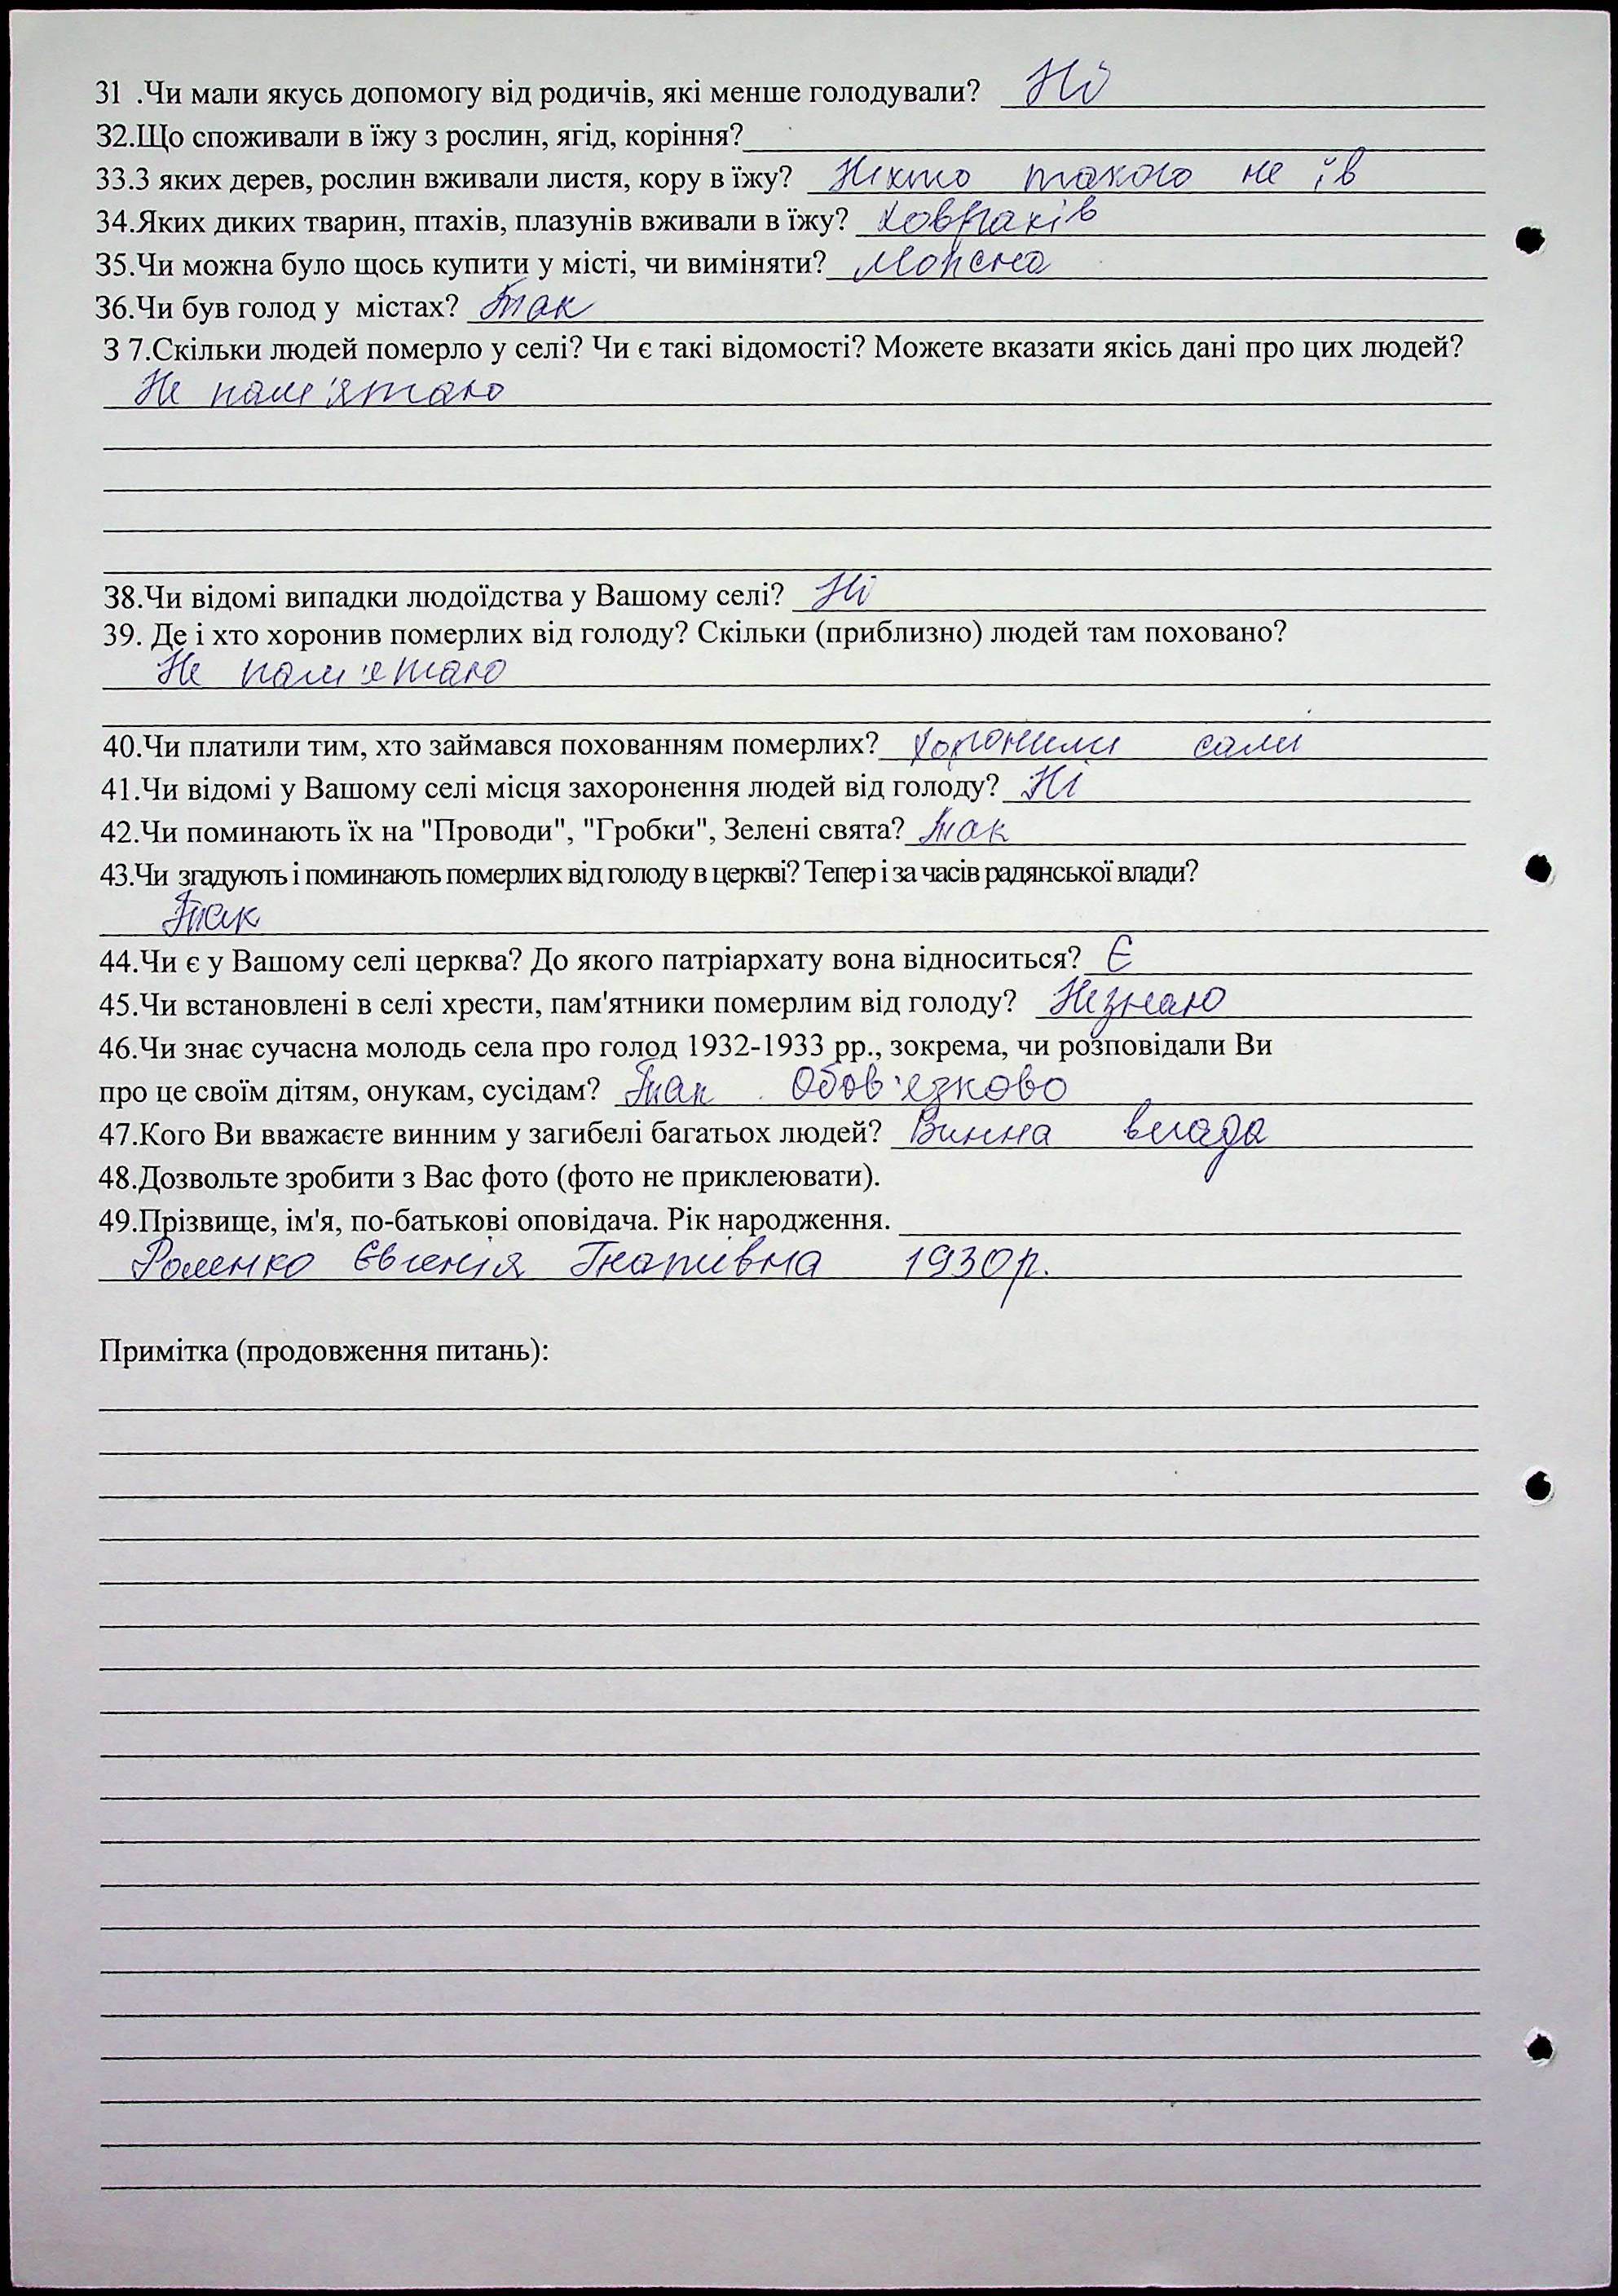 31 .Чи мали якусь допомогу від родичів, які менше голодували? Ні
32.Що споживали в їжу з рослин, ягід, коріння?
33.З яких дерев, рослин вживали листя, кору в їжу? Ніхто такого не їв
34.Яких диких тварин, птахів, плазунів вживали в їжу? Ховрахів
35.Чи можна було щось купити у місті, чи виміняти? Можна
36.Чи був голод у містах? Так
З 7.Скільки людей померло у селі? Чи є такі відомості? Можете вказати якісь дані про цих людей?
Не пам'ятаю
38.Чи відомі випадки людоїдства у Вашому селі? Ні
39. Де і хто хоронив померлих від голоду? Скільки (приблизно) людей там поховано?
Не пам'ятаю
40.Чи платили тим, хто займався похованням померлих? Хоронили сами
41.Чи відомі у Вашому селі місця захоронення людей від голоду? Ні
42.Чи поминають їх на "Проводи", "Гробки", Зелені свята? Так
43.Чи згадують і поминають померлих від голоду в церкві? Тепер і за часів радянської влади?
Так
44.Чи є у Вашому селі церква? До якого патріархату вона відноситься? Є
45.Чи встановлені в селі хрести, пам'ятники померлим від голоду? Незнаю
46.Чи знає сучасна молодь села про голод 1932-1933 рр., зокрема, чи розповідали Ви
про це своїм дітям, онукам, сусідам? Так Обов'язково
47.Кого Ви вважаєте винним у загибелі багатьох людей? Винна влада
48.Дозвольте зробити з Вас фото (фото не приклеювати).
49.Прізвище, ім'я, по-батькові оповідача. Рік народження.
Євгенія Гнатівна 1930р.
Примітка (продовження питань):